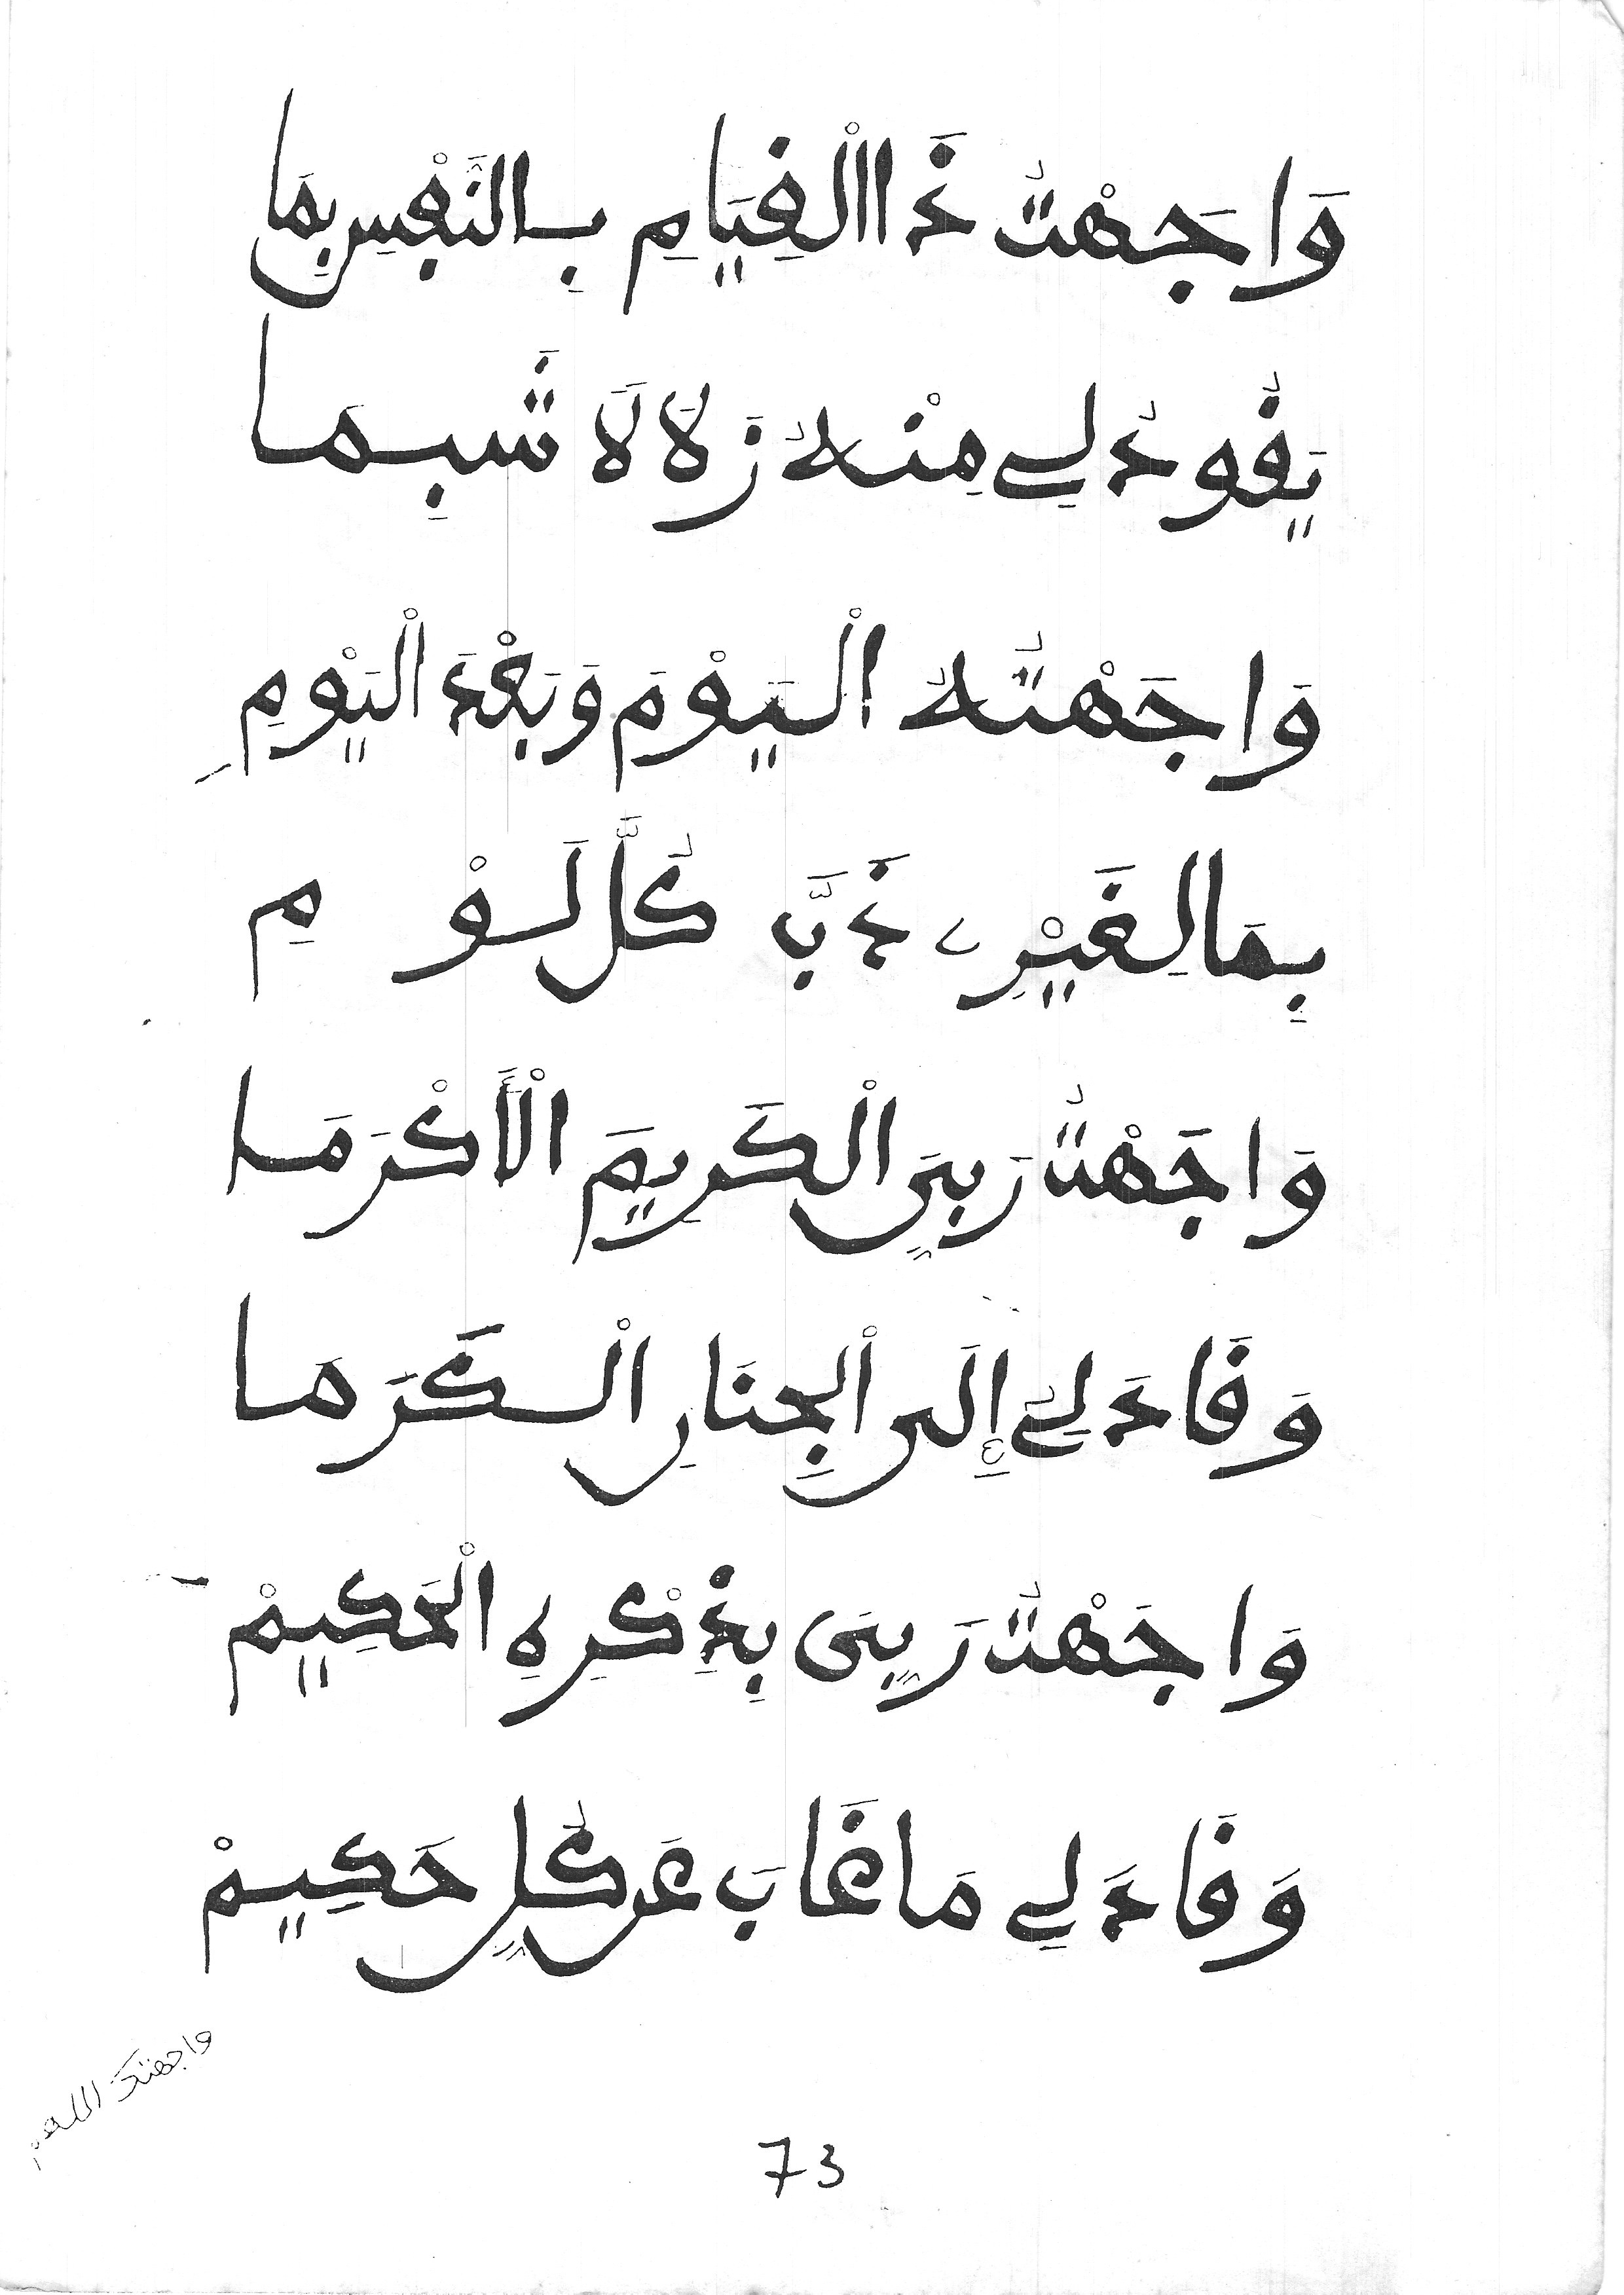 وَاجَهْتُ ذَا الْقِيَامِ بِالنَّفْسِ بِمَا
يَقُودُ لِي مِنْهُ زَلَالًا شَبِمَا
وَاجَهْتُهُ الْيَوْمَ وَبَعْدَ الْيَوْمِ
بِمَا لِغَيْرِے ذَبَّ كُلَّ لَوْمِ
وَاجَهْتُ رَبِّيَ الْكَرِيمَ الْأَكْرَمَا
وَقَادَ لِي إِلَى الْجِنَانِ الْكَرَمَا
وَاجَهْتُ رَبِّىَ بِذِكْرِهِ الْحَكِيمْ
وَقَادَ لِي مَا غَابَ عَن كُلِّ حَكِيمْ
واجهتك اللهم
73